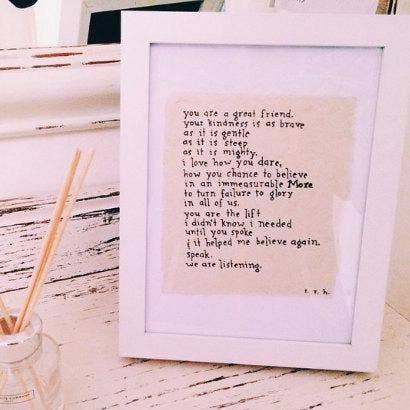 you are a great friend.
your kindness is as brave
as it is gentle
as it is steep
as it is mighty.
i love how you dare,
how you chance to believe
in an immeasurable More
to turn failure to glory
in all of us.
you are the lift
i didn't know i needed
until you spoke
& it helped me believe again.
speak.
we are listening.
r. r. h.